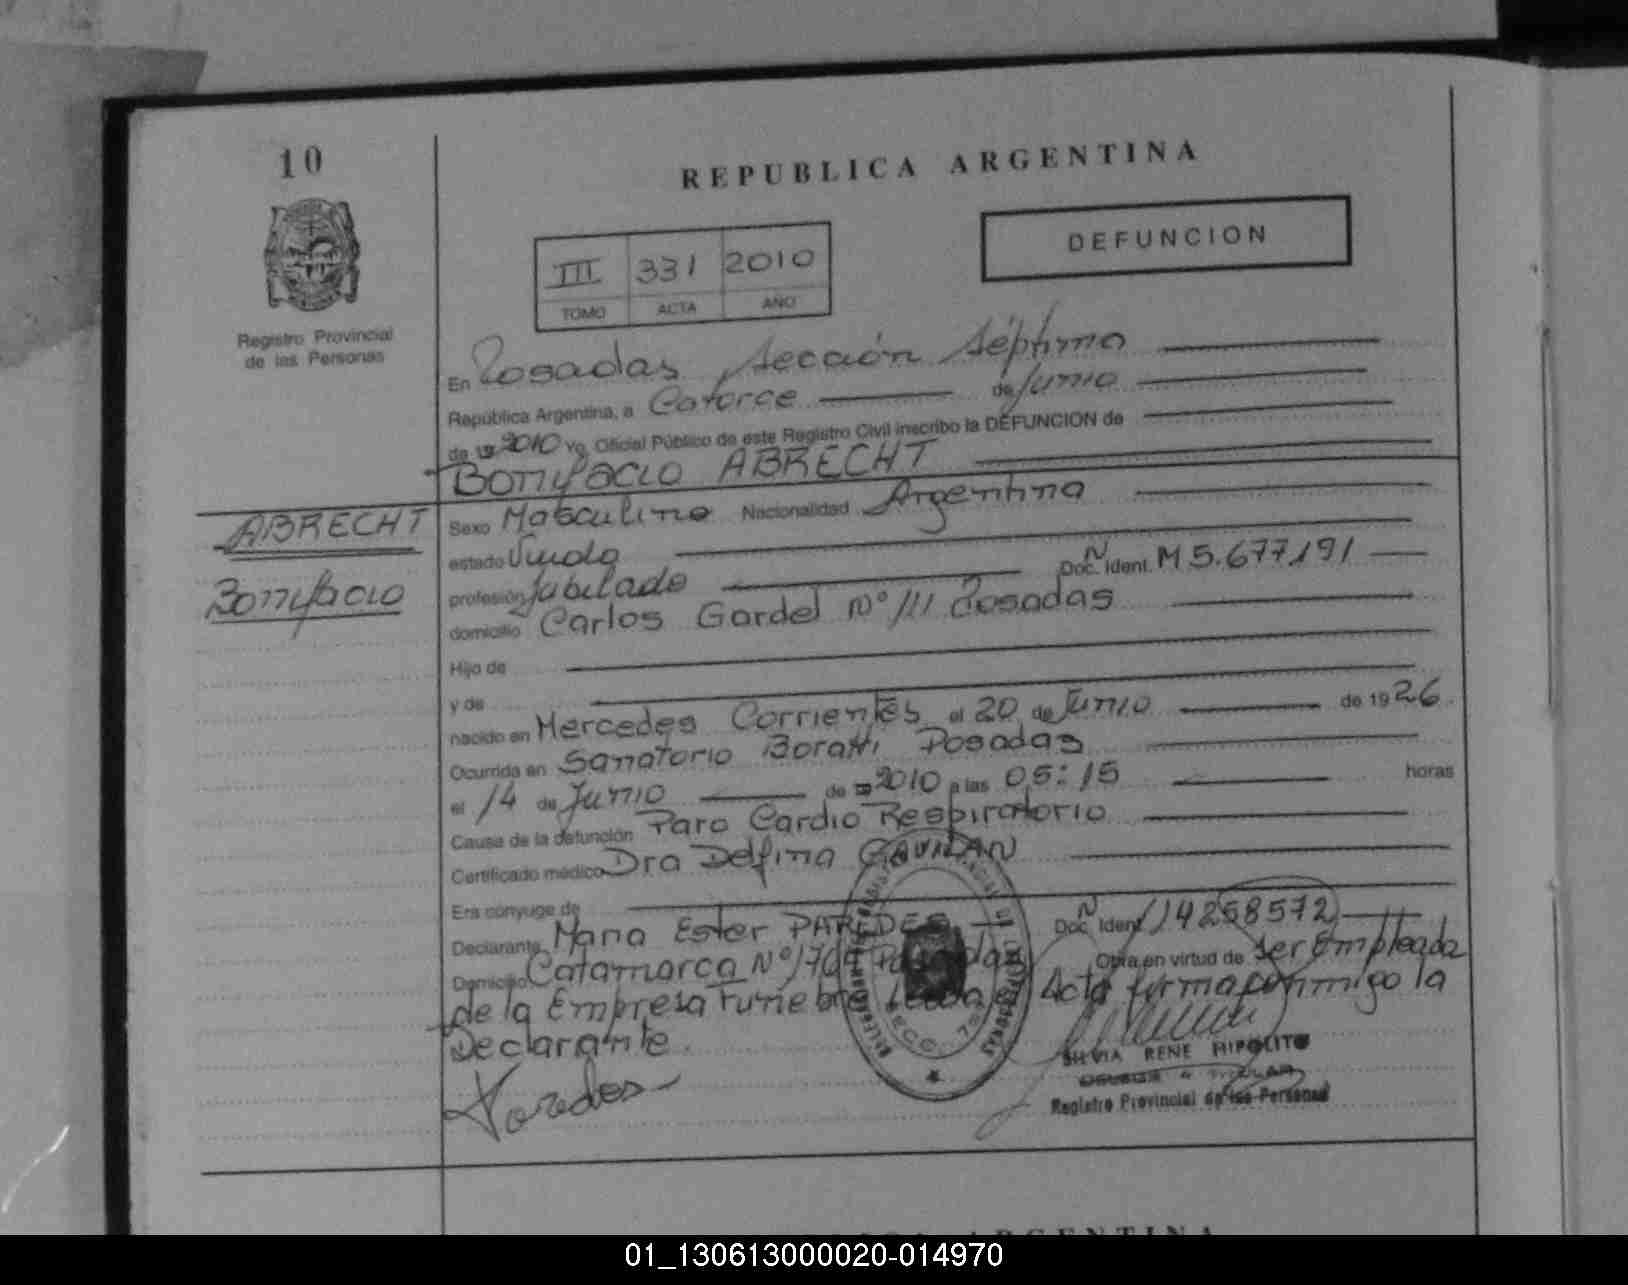 10
REPUBLICA ARGENTINA
Registro Provincial
de las Personas
DEFUNCION
III 331 2010
TOMO ACTA AÑO
En Posadas Sección Séptima
República Argentina, a Catorce de Junio
de 19 2010 Yo, Oficial Público de este Registro Civil inscribo la DEFUNCION de
Bonifacio ABRECHT
ABRECHT
Bonifacio
Sexo Masculino Nacionalidad Argentina
estado Viudo
profesión Jubilado Doc. N Ident. M 5.677.191
domicilio Carlos Gardel Nº 111 Posadas
Hijo de
y de
nacido en Mercedes Corrientes el 20 de Junio de 1926
Ocurrida en Sanatorio Boratti Posadas
el 14 de Junio de 19 2010 a las 05:15 horas
Causa de la defunción Paro Cardio Respiratorio
Certificado médico Dra Delfina GAVILAN
Era cónyuge de
Declarante Maria Ester PAREDES Doc. N Ident. 14258572
Domicilio Catamarca Nº Posadas Obra en virtud de ser Empleada
de la Empresa Funebre Acta firma conmigo la
Declarante
Paredes
SILVIA RENE HIPOLITO
Registro Provincial de las Personas
SECC. 7ª
REPUBLICA ARGENTINA
01_130613000020-014970